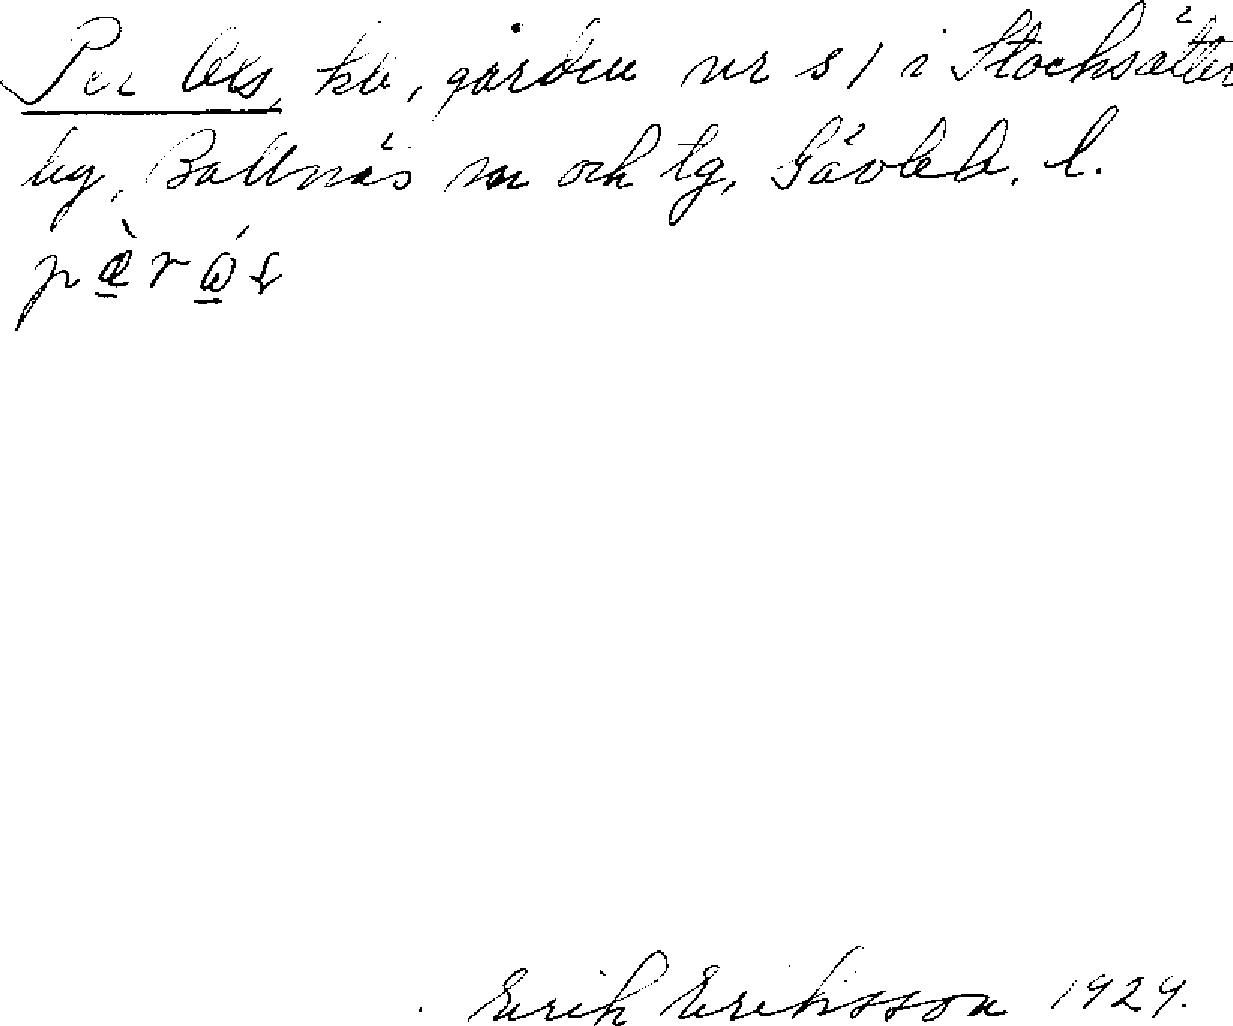 Per Ols, kb, gården nr 81 i Stocksätter
by, Bollnäs sn och tg, Gävleb. l.
pæ̀rώs
Erik Eriksson 1929.